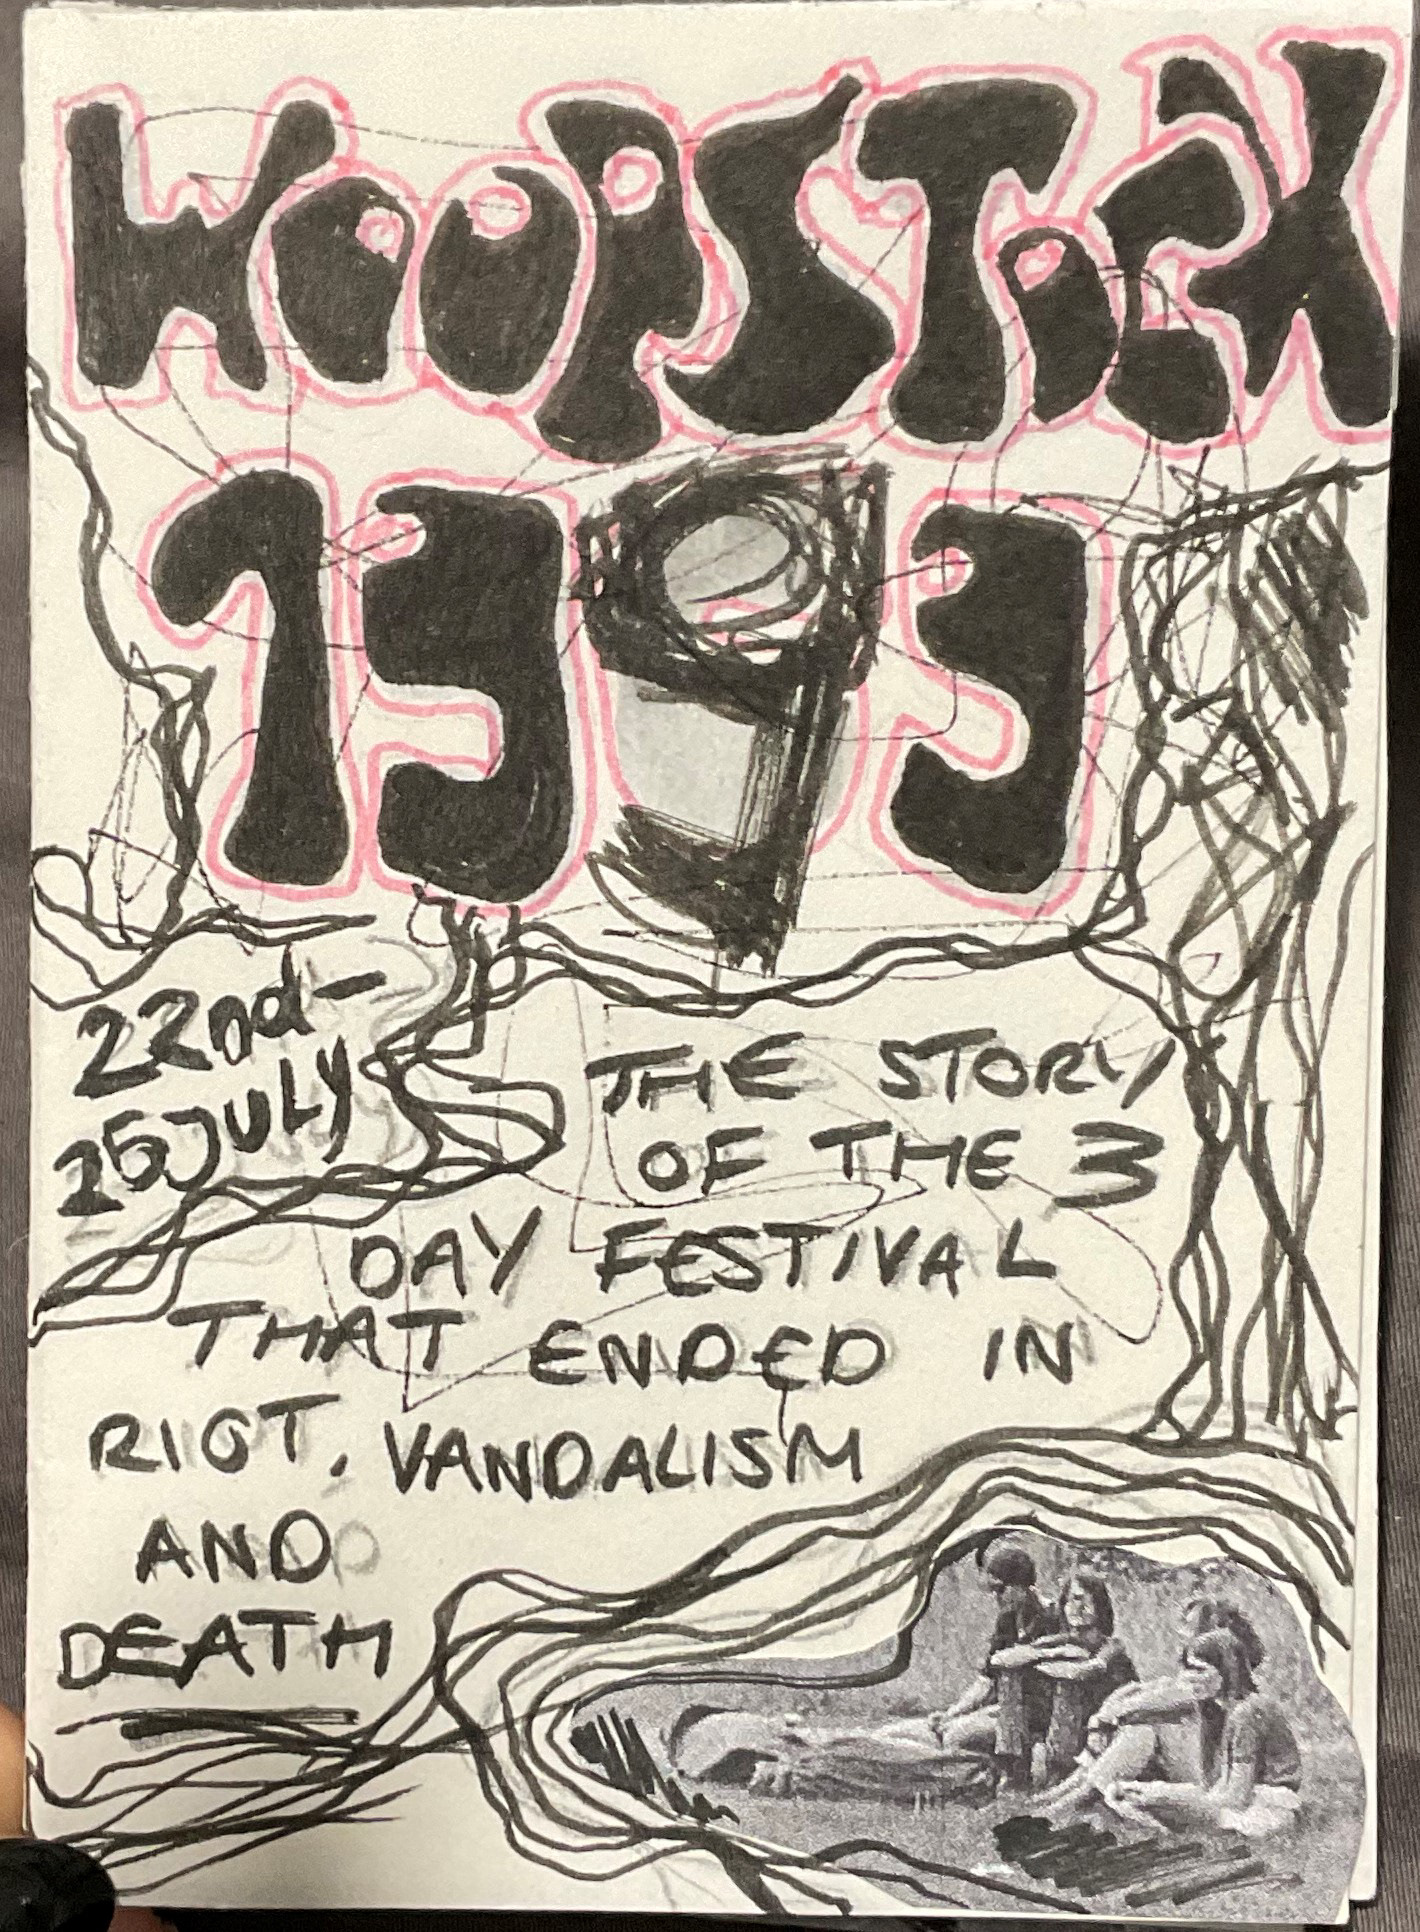 WOODSTOCK
1999
22nd-
25 JULY
THE STORY
OF THE 3
DAY FESTIVAL
THAT ENDED IN
RIOT, VANDALISM
AND
DEATH